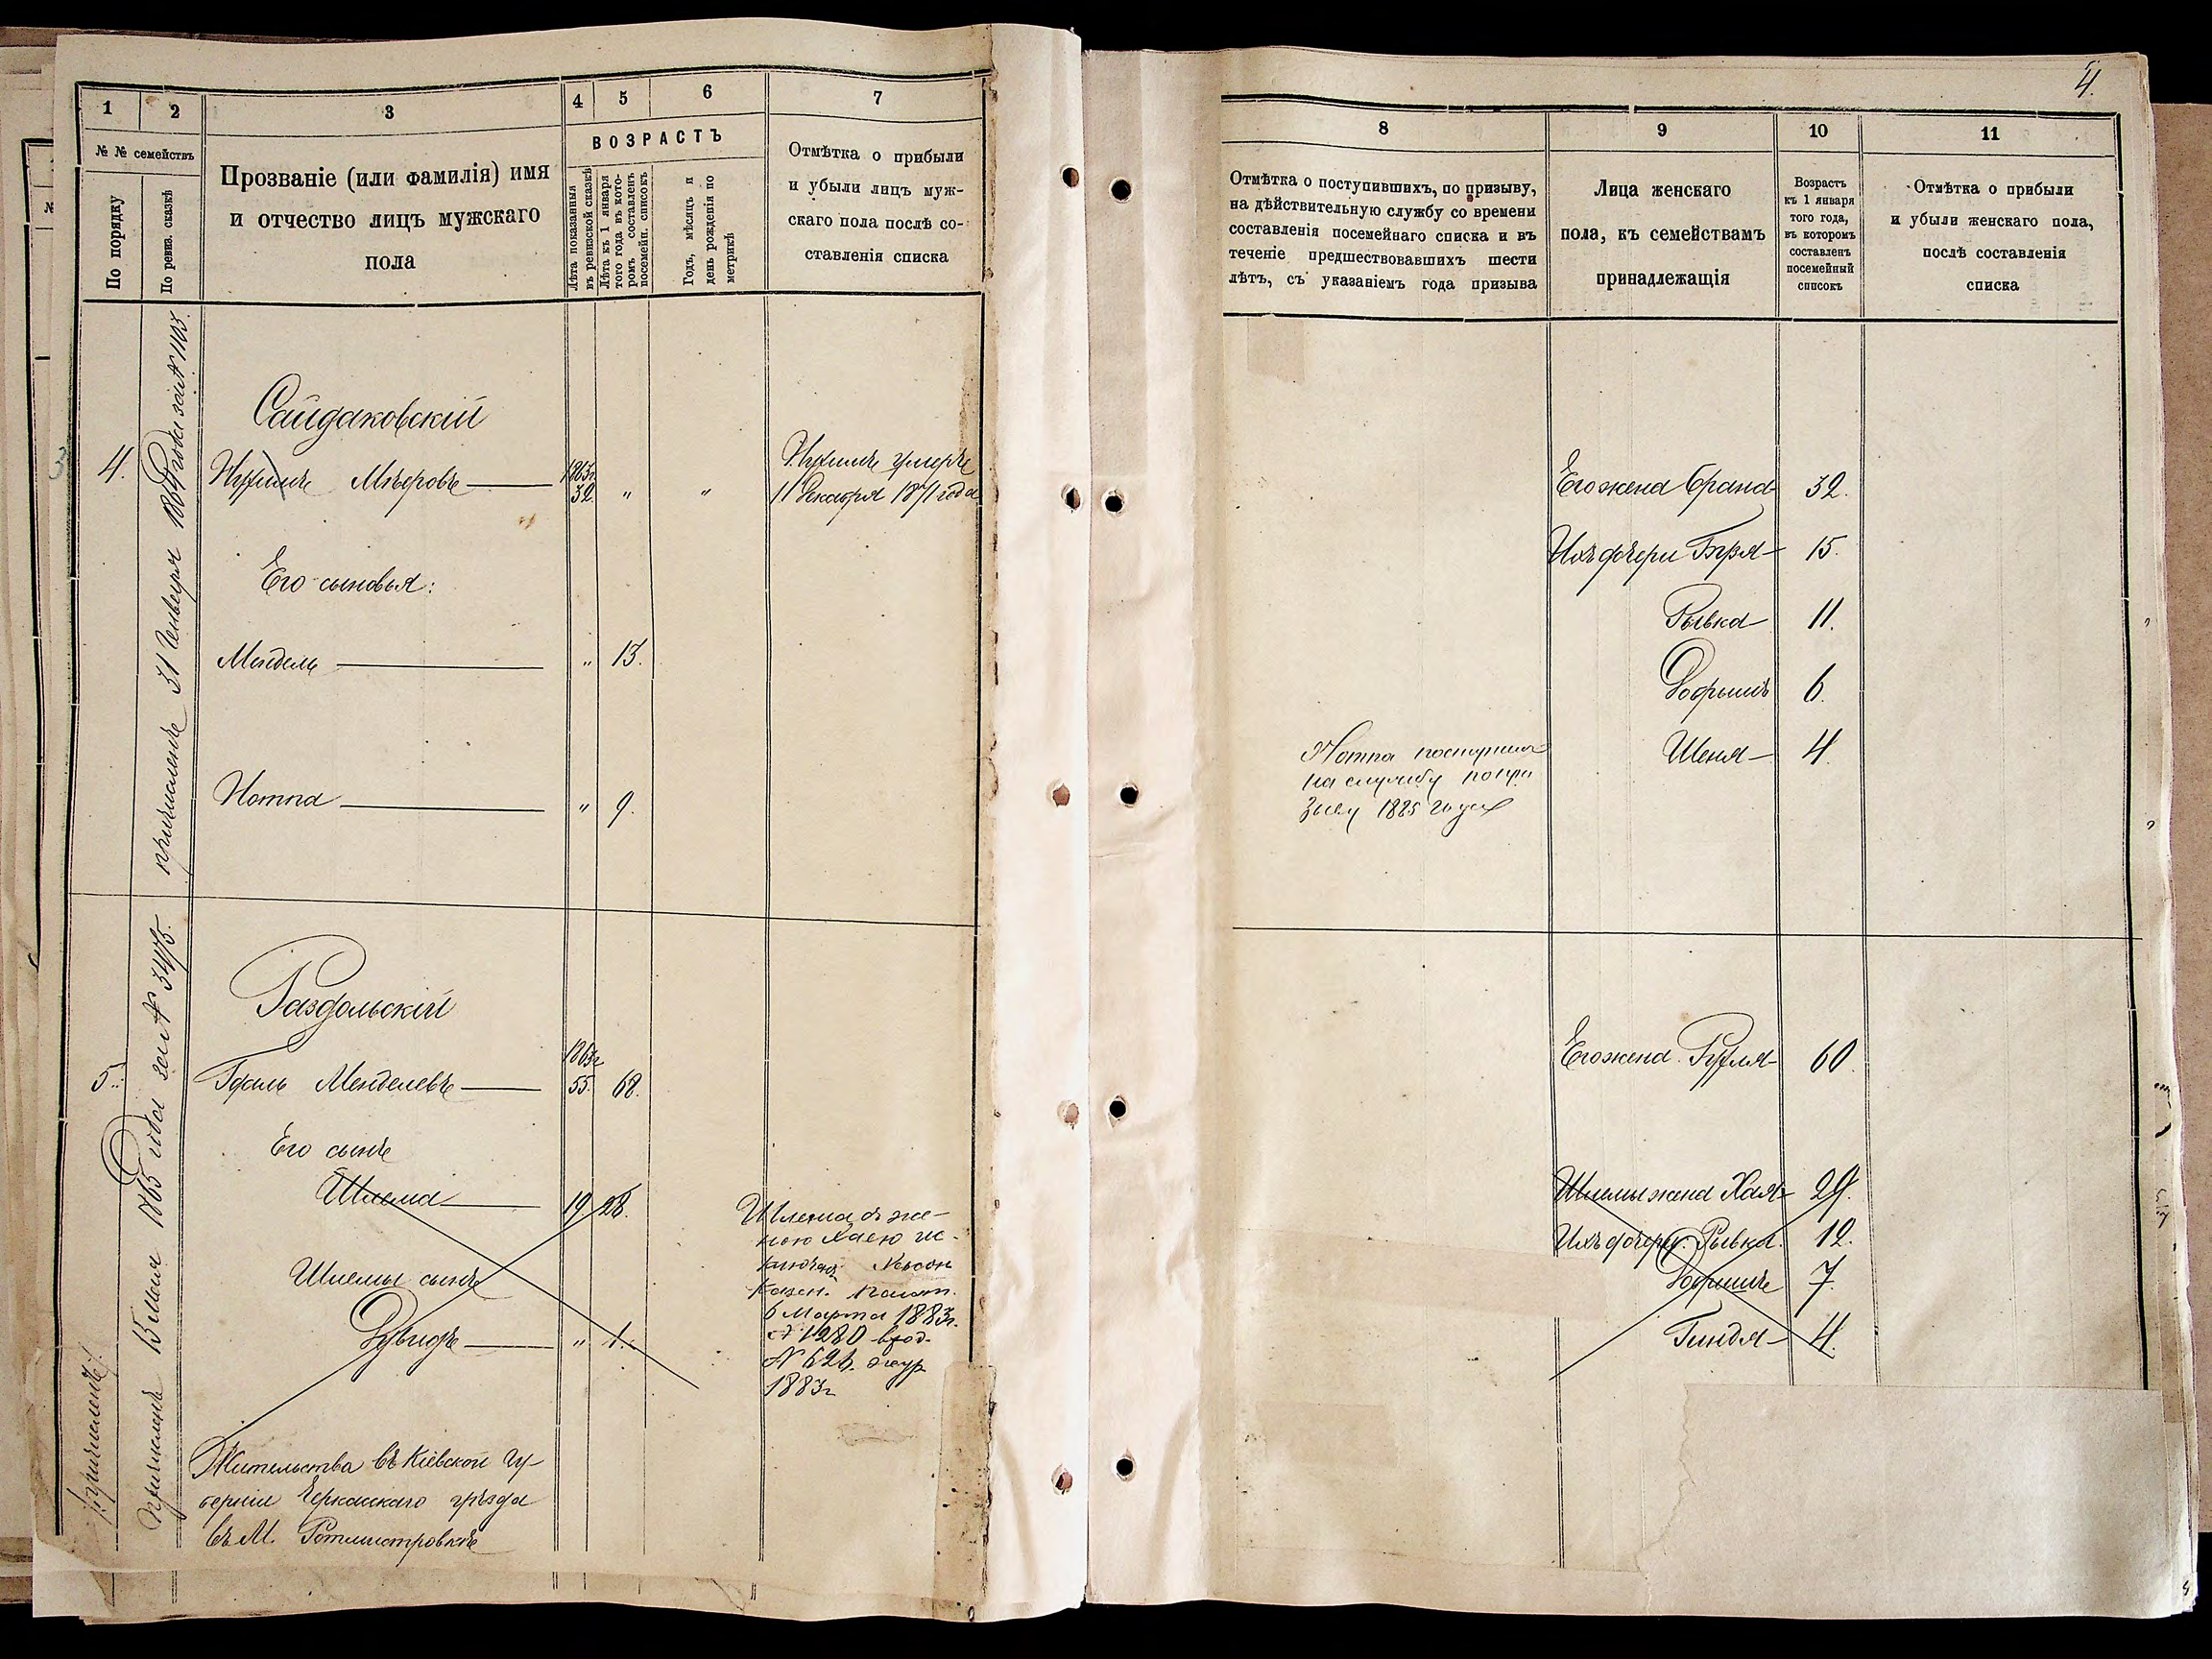 1
2
3
4
5
6
7
№ № семействъ
По порядку
По ревиз. сказкѣ
Прозваніе (или фамилія) имя
и отчество лицъ мужскаго
пола
ВОЗРАСТЪ
Лѣта показанныя
въ ревизской сказкѣ
Лѣта къ 1 января
того года въ кото-
ромъ составленъ
посемейн. списокъ
Годъ, мѣсяцъ и
день рожденія по
метрикѣ
Отмѣтка о прибыли
и убыли лицъ муж-
скаго пола послѣ со-
ставленія списка
3
4.
причисленъ 31 Генваря 1864 года за № 1103.
Сайдаковскій
Мѣеровъ
1863г.
32. " "
умеръ
11 Декабря 1871 года
Его сыновья:
Мендель " 13.
Нотта " 9.
5.
причисленъ
Причисленъ 15 Мая 1865 года за № 3475.
Раздольскій
1863г
Гдаль Менделевъ 55. 68.
Его сынъ
Шлема 19. 28.
Шлемы сынъ
Дувидъ " 1.
Шлема съ же-
ною Хаею ис-
ключен. Херсон
Казен. Палат.
6 Марта 1883г.
№ 1280 вход.
№ 626. жур
1883г
Жительства въ Кіевской гу-
берніи Черкасскаго уѣзда
въ М. Ротмистровкѣ
4.
8
9
10
11
Отмѣтка о поступившихъ, по призыву,
на дѣйствительную службу со времени
составленія посемейнаго списка и въ
теченіе предшествовавшихъ шести
лѣтъ, съ указаніемъ года призыва
Лица женскаго
пола, къ семействамъ
принадлежащія
Возрастъ
къ 1 января
того года,
въ которомъ
составленъ
посемейный
списокъ
Отмѣтка о прибыли
и убыли женскаго пола,
послѣ составленія
списка
Его жена Брана 32.
Ихъ дочери 15.
Рывка 11.
Добрышъ 6.
Шеня 4.
Нотта поступил
на службу по при
зыву 1885 года
Его жена 60.
Шлемы жена Хая 29.
Ихъ дочери: Рывка. 12.
Добришъ 7.
Гиндя 4.